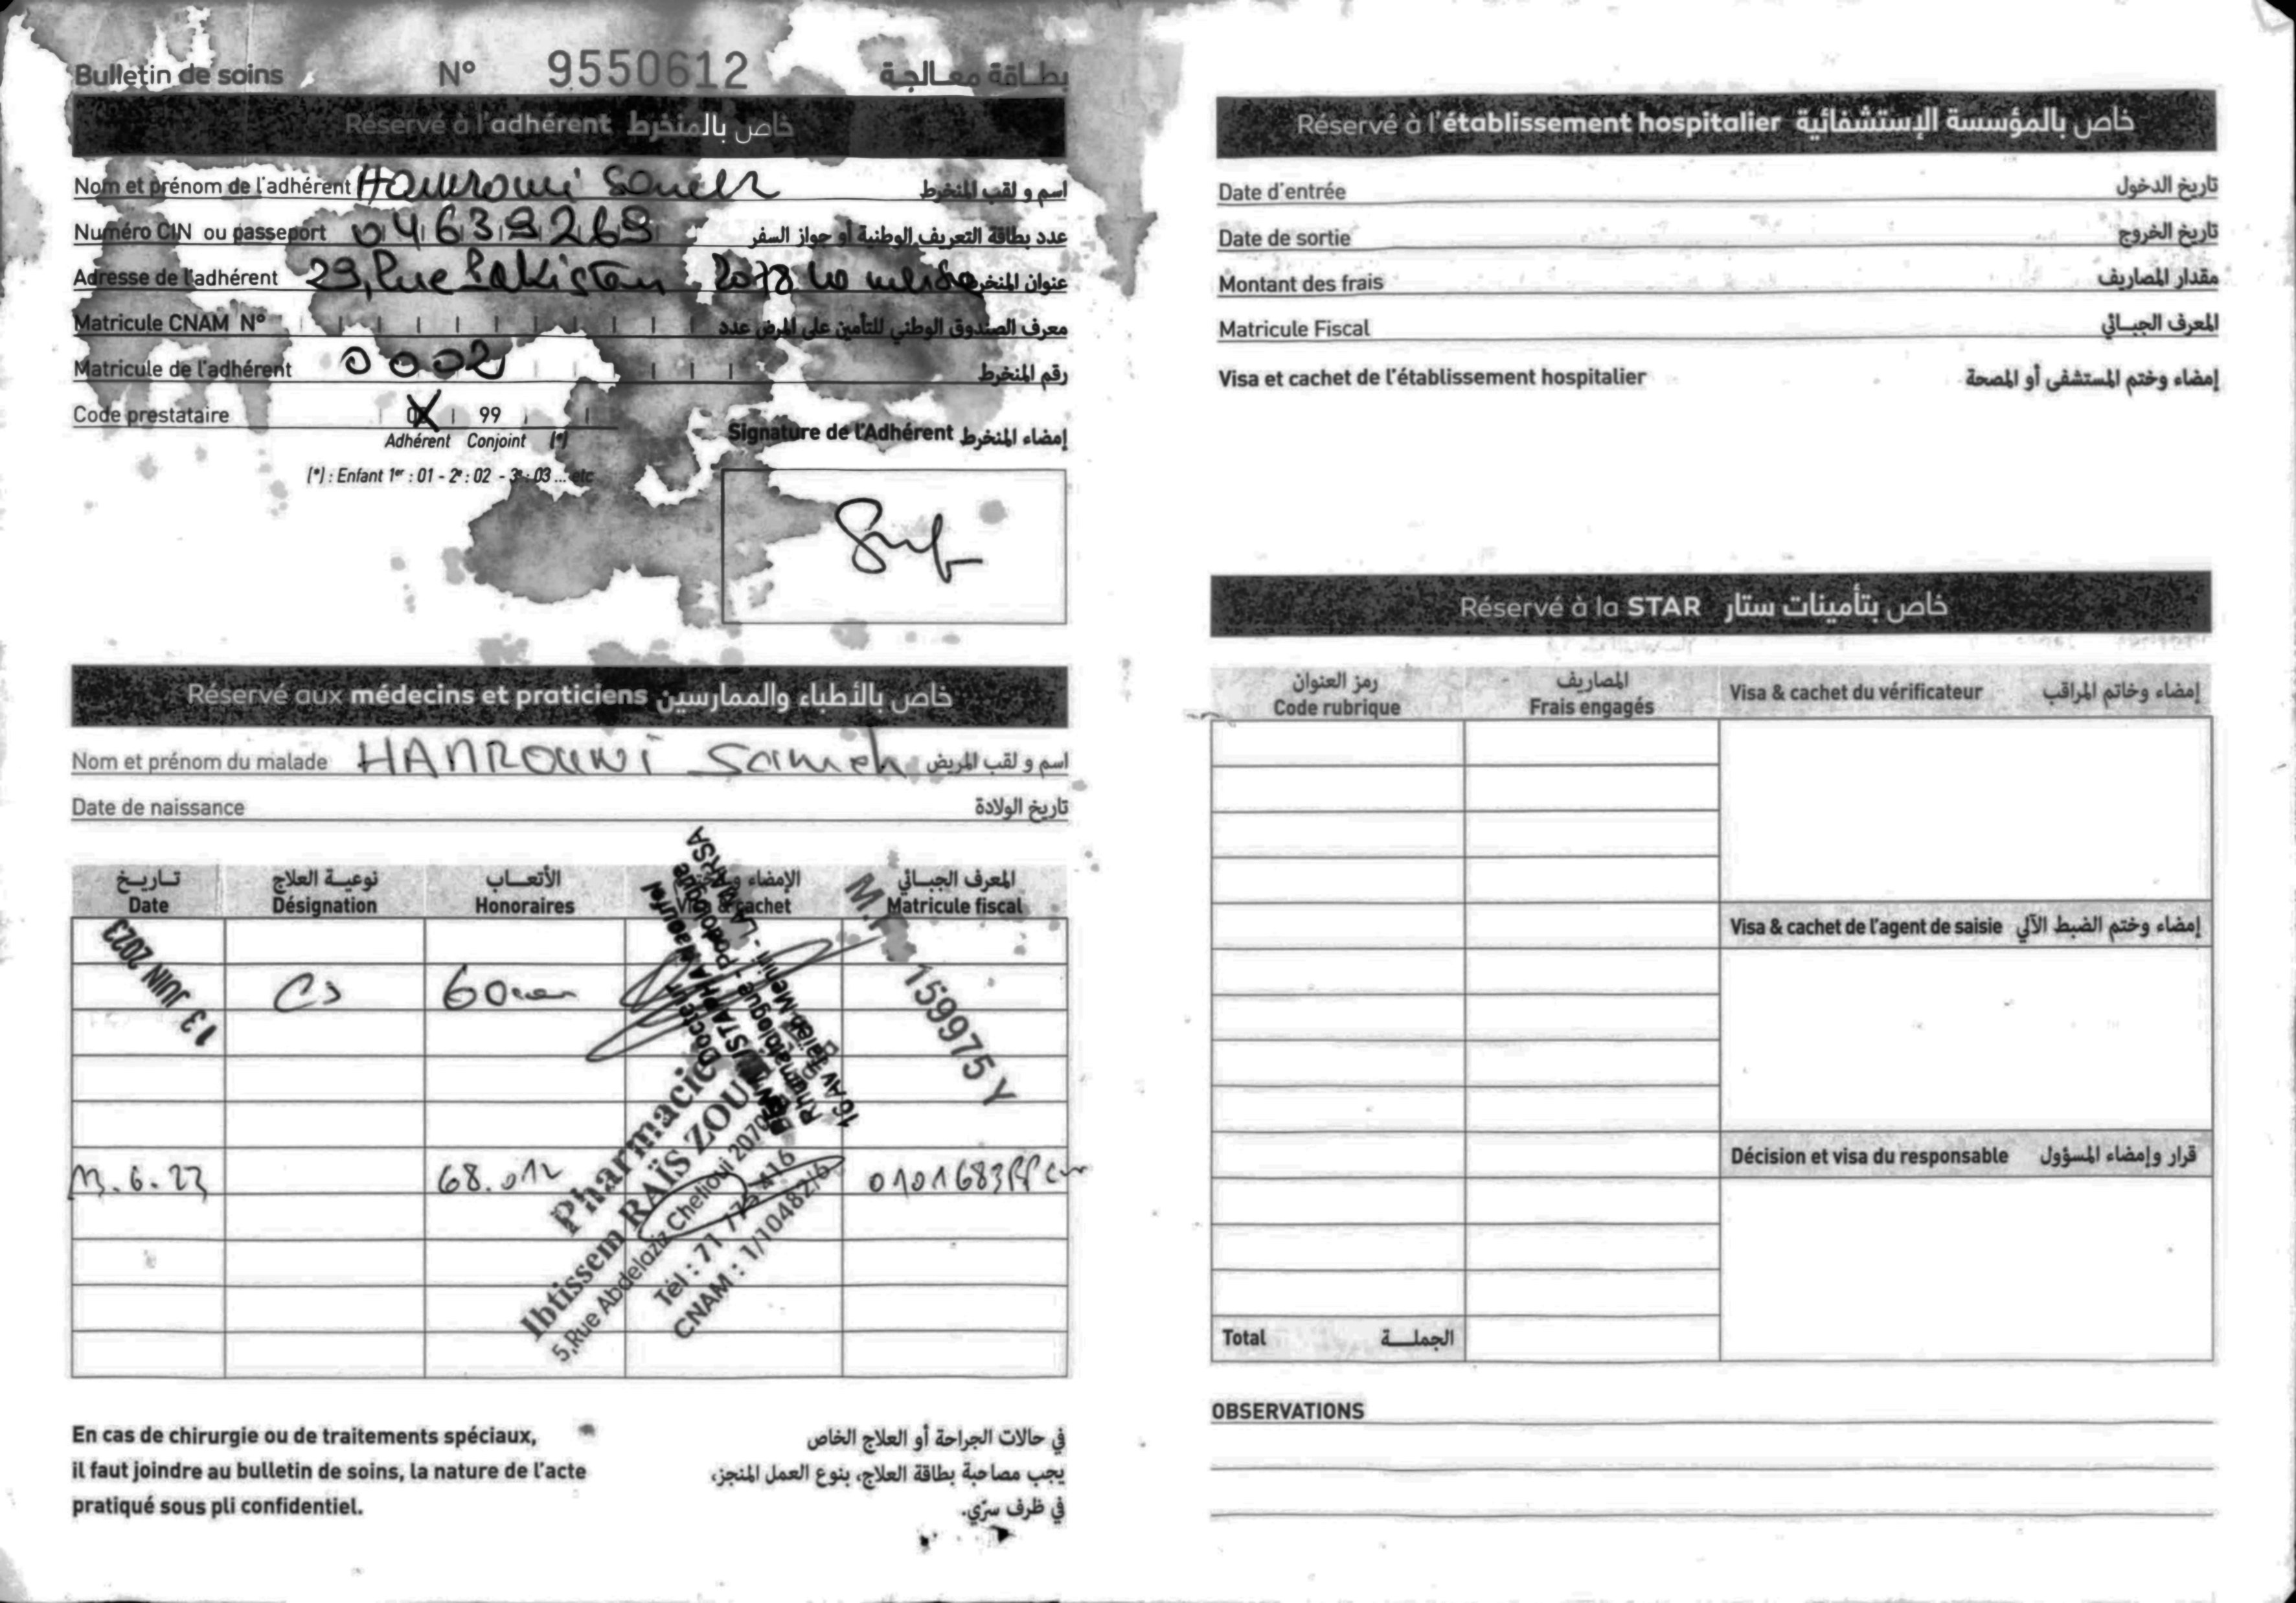 Bulletin de soins N° 9550612 بطاقة معالجة
Réservé à l'adhérent خاص بالمنخرط
Nom et prénom de l'adhérent اسم و لقب المنخرط
Numéro CIN ou passeport 04639269 عدد بطاقة التعريف الوطنية أو جواز السفر
Adresse de l'adhérent 29, Rue Pakistan 2078 عنوان المنخرط
Matricule CNAM N° معرف الصندوق الوطني للتأمين على المرض عدد
Matricule de l'adhérent 0002 رقم المنخرط
Code prestataire 99
Adhérent Conjoint (*)
(*) : Enfant 1er : 01 - 2e : 02 - 3e : 03 ... etc
Signature de l'Adhérent إمضاء المنخرط
Réservé aux médecins et praticiens خاص بالأطباء والممارسين
Nom et prénom du malade HAMROUNI Sameh اسم و لقب المريض
Date de naissance تاريخ الولادة
تاريخ نوعية العلاج الأتعاب الإمضاء المعرف الجبائي
Date Désignation Honoraires Visa & cachet Matricule fiscal
13 JUIN 2023
Cs 60
Docteur
Rhumatologue - Podologue
LA MARSA
1599975 Y
13.6.23 68.012 0101683
Pharmacie
Ibtissem RAÏS ZOU
5,Rue Abdelaziz Chelioui 2070
Tél : 71 775 416
CNAM : 1/10482/6
En cas de chirurgie ou de traitements spéciaux,
il faut joindre au bulletin de soins, la nature de l'acte
pratiqué sous pli confidentiel.
في حالات الجراحة أو العلاج الخاص
يجب مصاحبة بطاقة العلاج، بنوع العمل المنجز،
في ظرف سرّي.
Réservé à l'établissement hospitalier خاص بالمؤسسة الإستشفائية
Date d'entrée تاريخ الدخول
Date de sortie تاريخ الخروج
Montant des frais مقدار المصاريف
Matricule Fiscal المعرف الجبائي
Visa et cachet de l'établissement hospitalier إمضاء وختم المستشفى أو المصحة
Réservé à la STAR خاص بتأمينات ستار
رمز العنوان المصاريف
Code rubrique Frais engagés
Visa & cachet du vérificateur إمضاء وخاتم المراقب
Visa & cachet de l'agent de saisie إمضاء وختم الضبط الآلي
Décision et visa du responsable قرار وإمضاء المسؤول
Total الجملة
OBSERVATIONS